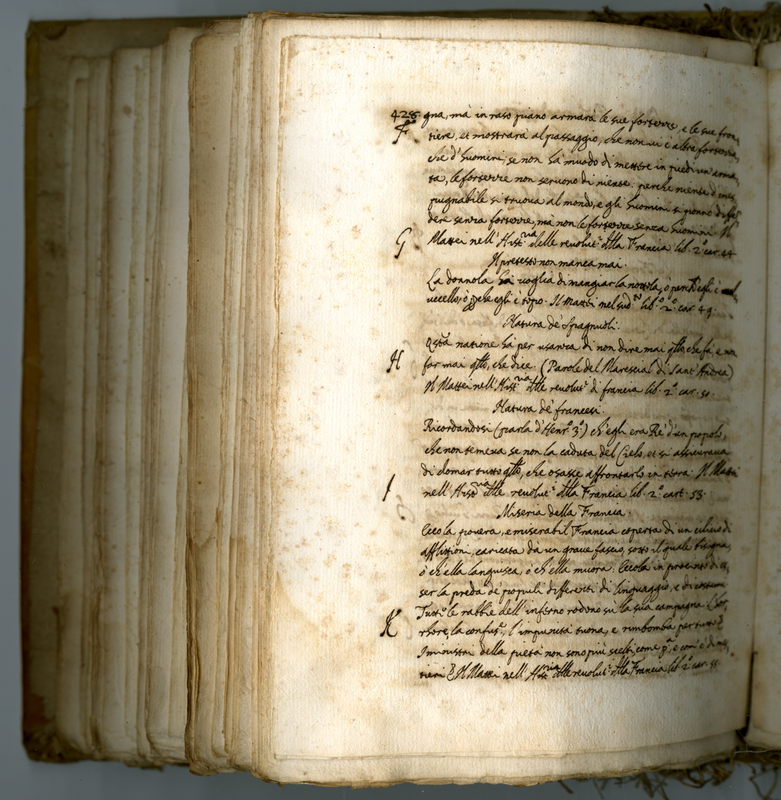 428. gna, mà in raso piano armarà le sue fortezze, e le sue fron
F tiere, et mostrarà al passaggio, che non vi è altre fortezza,
che d'huomini, se non hà muodo di mettere in piedi un'arma
ta, le fortezze non seruono di niente. perche niente d'ines
pugnabile si truoua al mondo, e gli huomini si ponno diffen
dere senza fortezze, mà non le fortezze senza huomini. Il
G Mattei nell'Hist.ria delle reuolut.i della Francia lib. 2.o car. 44
Il pretesto non manca mai.
La donnola hà voglia di mangiar la nottola, ò perch'egli è
uccello, ò perche egli è topo. Il Mattei nel sud.to lib.o 2.o car. 49.
Natura de' Spagnuoli.
Q.sta natione hà per usanza di non dire mai q.llo, che fà, e nõ
H far mai q.llo, che dice. (Parole del Marescial di Sant'Andrea)
Il Mattei nell'Hist.ria delle reuolut.i di francia lib. 2.o car. 50.
Natura de' francesi.
Ricordandosi (parla d'Henr.o 3.o) ch'egli era Rè d'un popolo,
che non temeua se non la caduta del Cielo, et si assicuraua
di domar tutto q.llo, che osasse affrontarlo in terra. Il Mattei
I nell'Hist.ria delle reuolut.i della Francia lib. 2.o cart. 53.
Miseria della Francia.
Eccola pouera, e miserabil Francia coperta di un cilicio di
afflittioni, caricata da un graue fascio, sotto il quale bisogna,
ò ch'ella languisca, ò ch'ella muora. Eccola in procinto di es
ser la preda de' populi differenti di linguaggio, e di costumi
K Tutte le rabbie dell'inferno rodono su la sua campagna. L'hor
rhore, la confus.e, l'impunità tuona, e rimbomba per tutto.
I ministri della pietà non sono più scelti, come p.a e
tieri. Il Mattei nell'Hist.ria delle reuolut.i della Francia lib. 2.o car. 55.